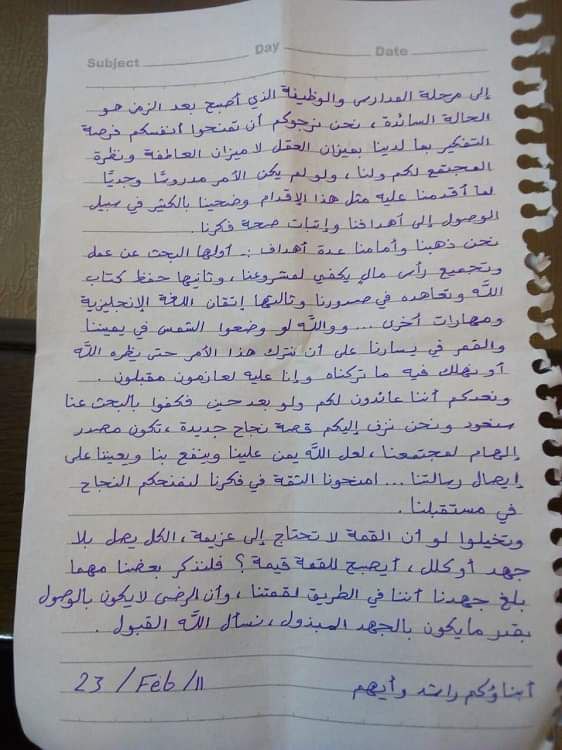 Subject Day Date
إلى مرحلة المدارس والوظيفة الذي أصبح بعد الزمن هو
الحالة السائدة، نحن نرجوكم أن تمنحوا أنفسكم فرصة
التفكير بما لدينا بميزان العقل لا ميزان العاطفة ونظرة
المجتمع لكم ولنا، ولو لم يكن الأمر مدروسًا وجديًّا
لما أقدمنا عليه مثل هذا الإقدام وضحينا بالكثير في سبيل
الوصول إلى أهدافنا وإثبات صحة فكرنا.
نحن ذهبنا وأمامنا عدة أهداف :- أولها البحث عن عمل
وتجميع رأس مال يكفي لمشروعنا، وثانيها حفظ كتاب
اللّٰه وتعاهده في صدورنا وثالثها إتقان اللغة الإنجليزية
ومهارات أخرى ... وواللّٰه لو وضعوا الشمس في يميننا
والقمر في يسارنا على أن نترك هذا الأمر حتى يظهره اللّٰه
أو نهلك فيه ما تركناه وإنا عليه لعازمون مقبلون.
ونعدكم أننا عائدون لكم ولو بعد حين فكفوا بالبحث عنا
سنعود ونحن نزف إليكم قصة نجاح جديدة، تكون مصدر
إلهام لمجتمعنا، لعل اللّٰه يمن علينا وينفع بنا ويعيننا على
إيصال رسالتنا ... امنحونا الثقة في فكرنا لنمنحكم النجاح
في مستقبلنا.
وتخيلوا لو أن القمة لا تحتاج إلى عزيمة، الكل يصل بلا
جهد أو كلل، أيصبح للقمة قيمة؟ فلنذكر بعضنا مهما
بلغ جهدنا أننا في الطريق لقمتنا، وأن الرضى لا يكون بالوصول
بقدر ما يكون بالجهد المبذول، نسأل اللّٰه القبول.
أبناؤكم رائد وأيهم
23 / Feb / 11